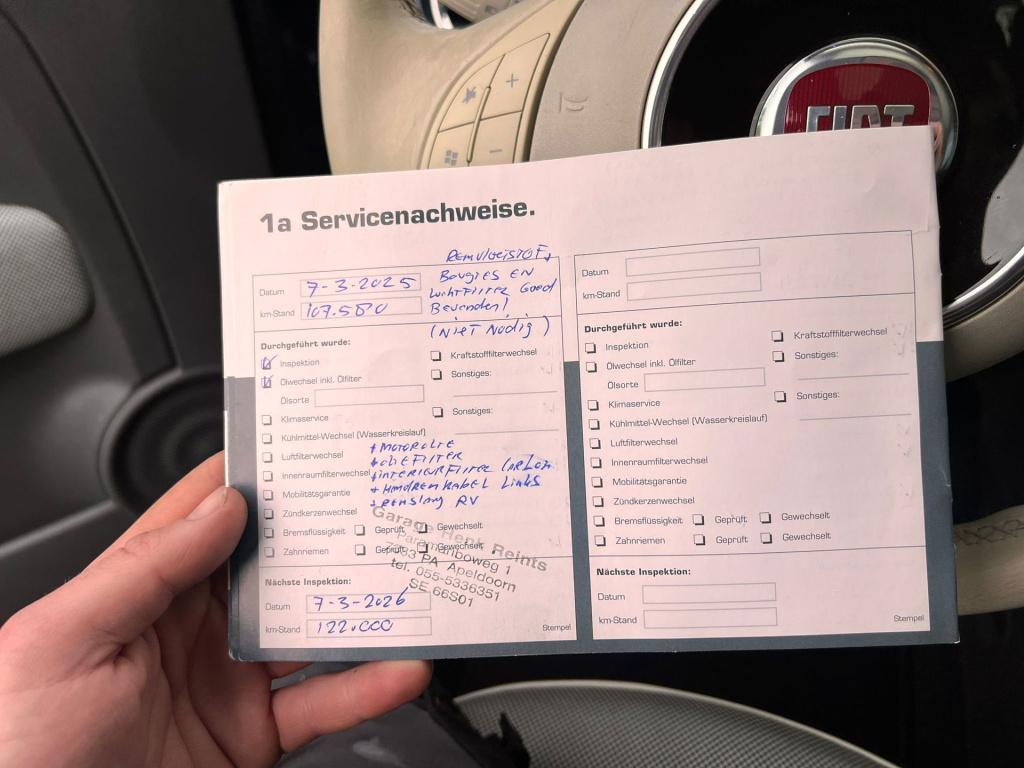 FIAT
1a Servicenachweise.
Datum 7-3-2025
km-Stand 107.580
REMVLOEISTOF,
Bougies EN
LuchtFilter Goed
Bevonden!
(Niet Nodig)
Durchgeführt wurde:
Inspektion
Ölwechsel inkl. Ölfilter
Ölsorte
Klimaservice
Kühlmittel-Wechsel (Wasserkreislauf)
Luftfilterwechsel
Innenraumfilterwechsel
Mobilitätsgarantie
Zündkerzenwechsel
Bremsflüssigkeit Geprüft Gewechselt
Zahnriemen Geprüft Gewechselt
Kraftstofffilterwechsel
Sonstiges:
Sonstiges:
+ MOTOROLIE
+ OLIEFILTER
+ INTERIEURFILTER
+ HANDREMKABEL LINKS
+ REMSLANG RV
Garage Henk Reints
Paramariboweg 1
7333 PA Apeldoorn
tel. 055-5336351
SE 66S01
Nächste Inspektion:
Datum 7-3-2026
km-Stand 122.000
Stempel
Datum
km-Stand
Durchgeführt wurde:
Inspektion
Ölwechsel inkl. Ölfilter
Ölsorte
Klimaservice
Kühlmittel-Wechsel (Wasserkreislauf)
Luftfilterwechsel
Innenraumfilterwechsel
Mobilitätsgarantie
Zündkerzenwechsel
Bremsflüssigkeit Geprüft Gewechselt
Zahnriemen Geprüft Gewechselt
Kraftstofffilterwechsel
Sonstiges:
Sonstiges:
Nächste Inspektion:
Datum
km-Stand
Stempel